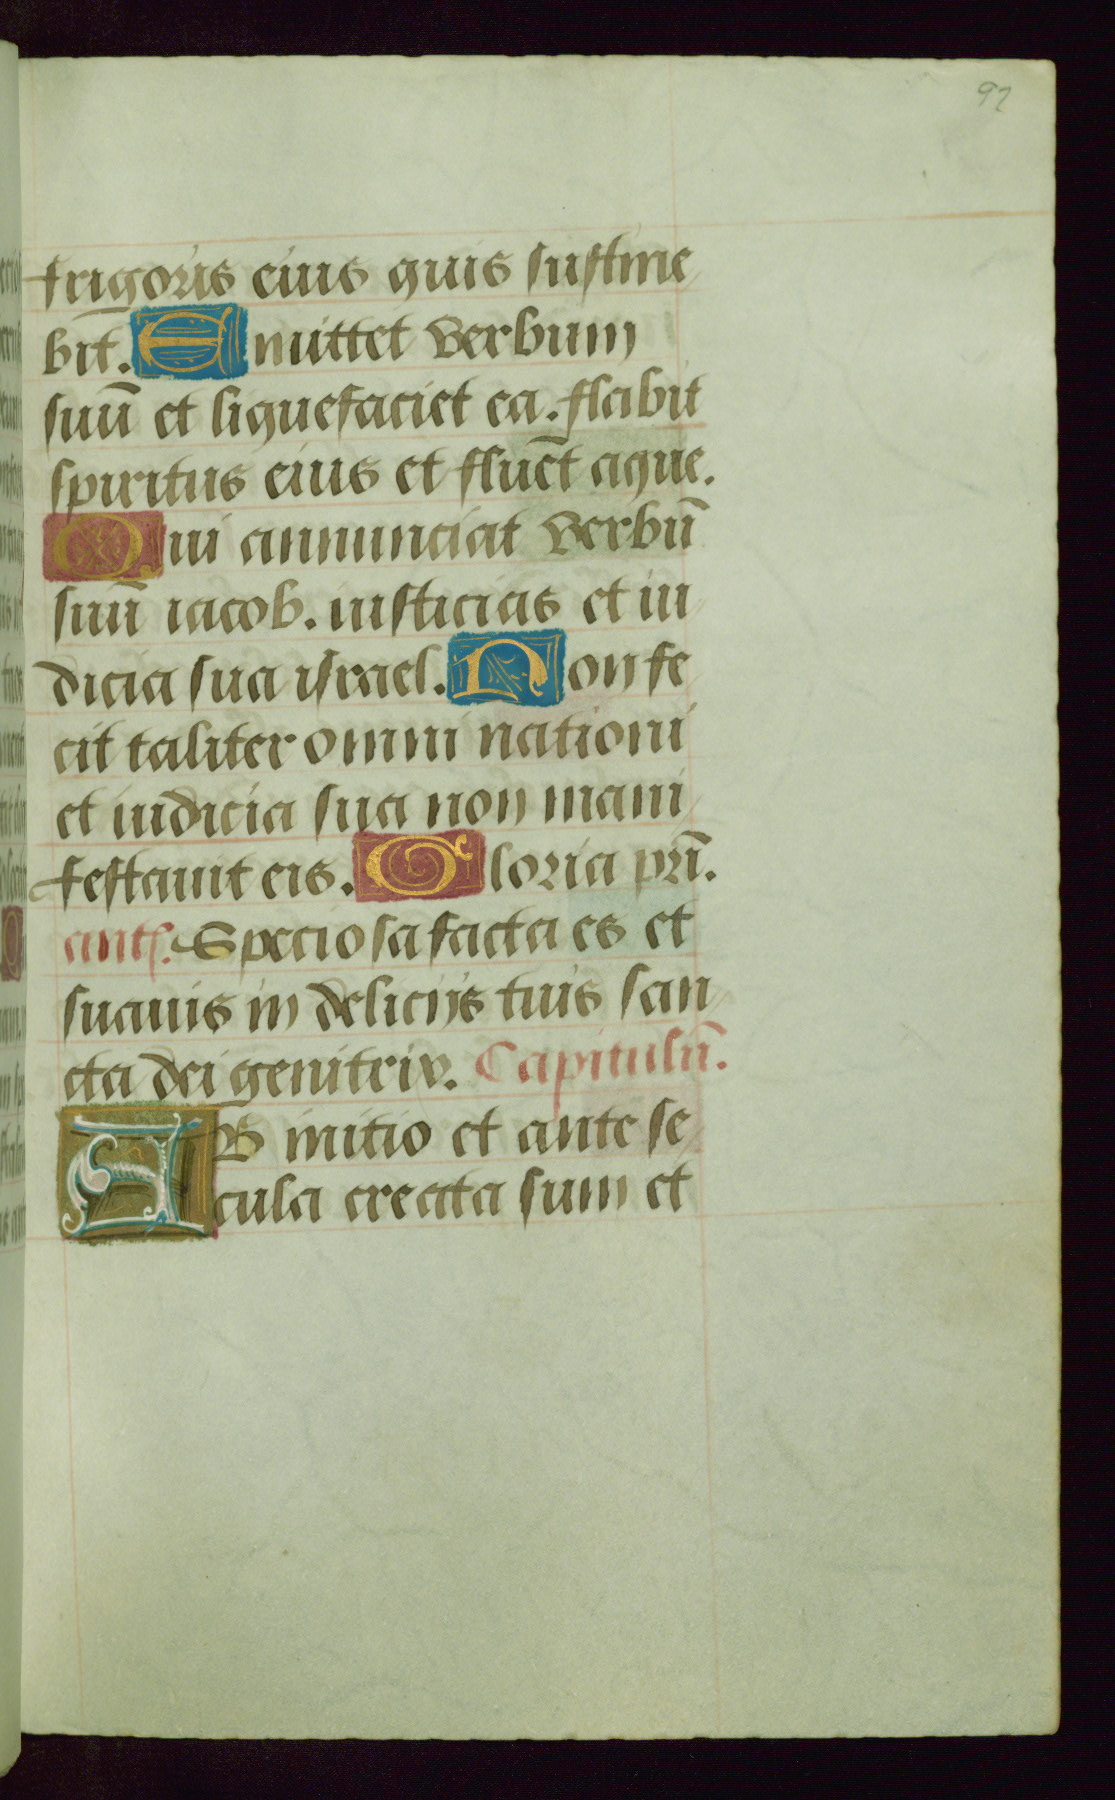 92
frigoris eius quis sustine
bit. Emittet verbum
suū et liquefaciet ea. flabit
spiritus eius et fluēt aque.
Qui annunciat verbū
suū iacob. iusticias et iu
dicia sua israel. Non fe
cit taliter omni nationi
et iudicia sua non mani
festauit eis. Gloria pri̅.
ant. Speciosa facta es et
suauis in delicijs tuis san
cta dei genitrix. Capitulū.
AB initio et ante se
cula creata sum et